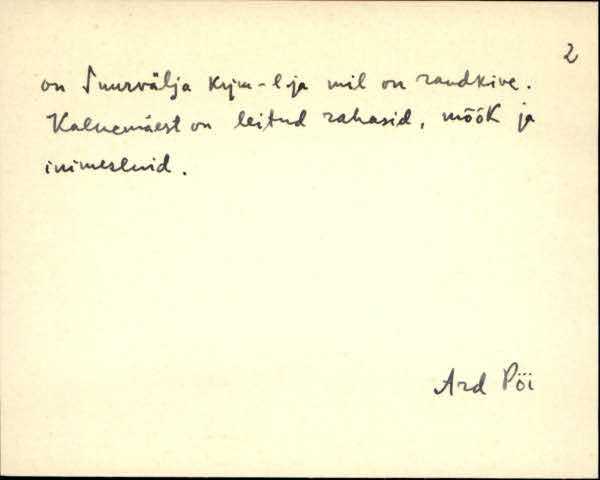 2
on Suurvälja küm-l ja mil on raudkive.
Kalmemäest on leitud rahasid, mõõk ja
inimesluid.
Ard Pöi